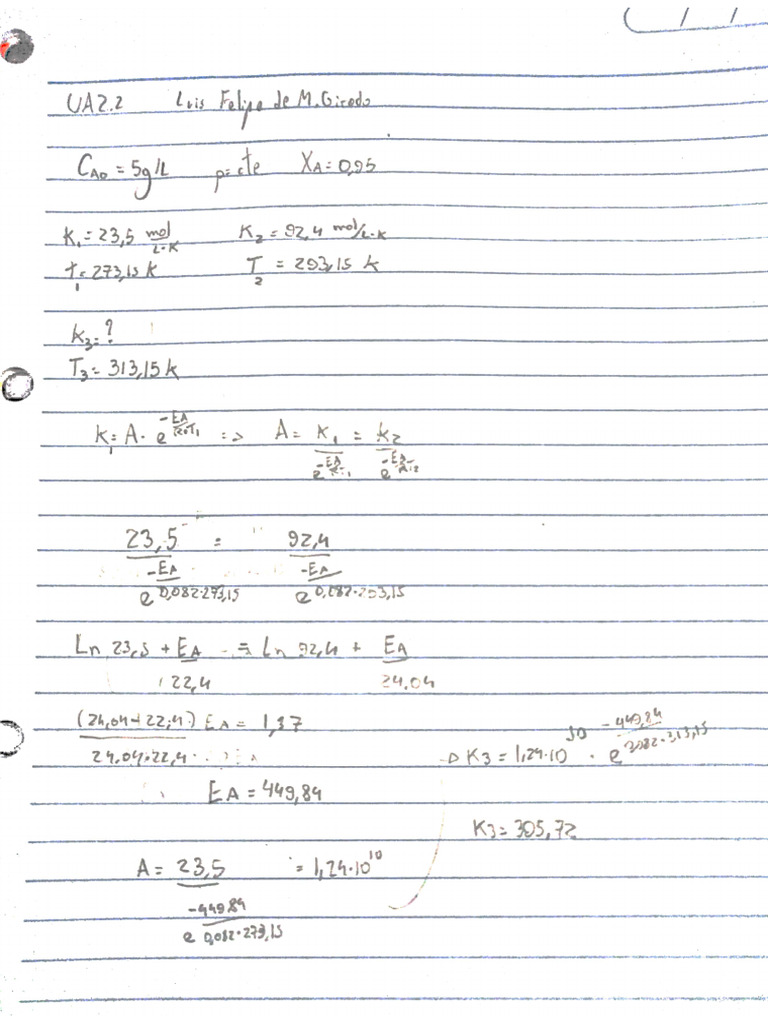 UA2.2 Luis Felipe de M.
C_A0 = 5g/L p= cte X_A = 0,95
K_1 = 23,5 mol/L·K K_2 = 92,4 mol/L·K
T_1 = 273,15 K T_2 = 293,15 K
K_3 = ?
T_3 = 313,15 K
K_1 = A · e^(-EA/R·T_1) => A = K_1/e^(-EA/R·T_1) = K_2/e^(-EA/R·T_2)
23,5/e^(-EA/0,082·273,15) = 92,4/e^(-EA/0,082·293,15)
Ln 23,5 + EA/22,4 = Ln 92,4 + EA/24,04
(24,04-22,4)/24,04·22,4 EA = 1,37
K_3 = 1,24·10^10 · e^(-449,84/0,082·313,15)
EA = 449,84
K_3 = 305,72
A = 23,5/e^(-449,84/0,082·273,15) = 1,24·10^10